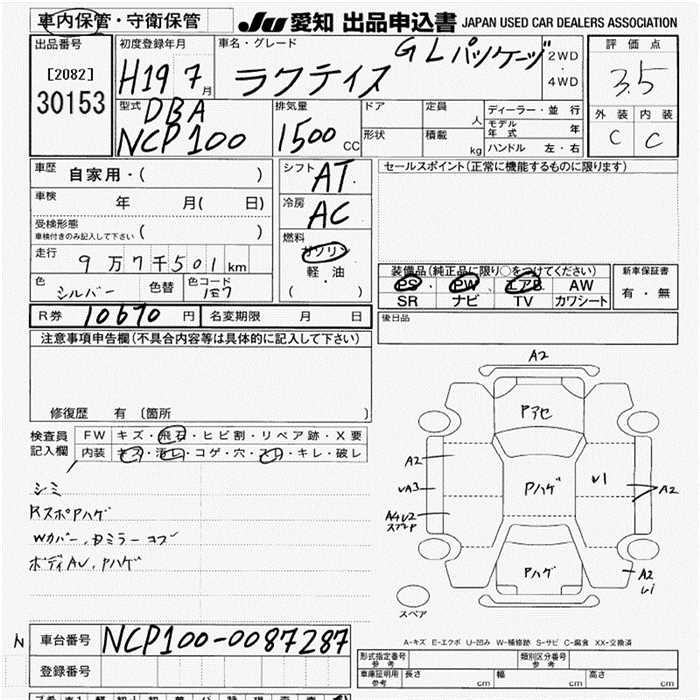 車内保管・守衛保管
JU 愛知 出品申込書 JAPAN USED CAR DEALERS ASSOCIATION
出品番号
[2082]
30153
初度登録年月
H19 7月
車名・グレード
GLパッケージ
ラクティス
2WD
・
4WD
評価点
3.5
外装 内装
C C
型式
DBA
NCP100
排気量
1500 CC
ドア
定員
人
形状
積載
kg
ディーラー・並行
モデル年式 年
ハンドル 左・右
車歴
自家用・( )
車検
年 月( 日)
受検形態
車検付きのみ記入して下さい ( )
走行
9万7千501km
色
シルバー
色替
色コード
1E7
シフト
AT
冷房
AC
燃料
ガソリン
軽・油
( )
セールスポイント(正常に機能するものに限ります)
装備品(純正品に限り○をつけてください)
PS PW エアB AW
SR ナビ TV カワシート
新車保証書
有・無
R券 10670 円
名変期限 月 日
後日品
注意事項申告欄(不具合内容等は具体的に記入して下さい)
修復歴 有 〔箇所 〕
検査員
記入欄
FW キズ・飛石・ヒビ割・リペア跡・X要
内装 キズ・汚レ・コゲ・穴・スレ・キレ・破レ
シミ
RスポPハゲ
Wカバー、Dミラーコゲ
ボディAU、Pハゲ
A2
Pアセ
A2
UA3
A4U2
スアナP
Pハゲ
U1
A2
Pハゲ
A2
Ui
スペア
A-キズ E-エクボ U-凹み W-補修跡 S-サビ C-腐食 XX-交換済
N
車台番号 NCP100-0087287
登録番号
形式指定番号
参考
類別区分番号
参考
車庫証明用
参考
長さ cm
幅 cm
高さ cm